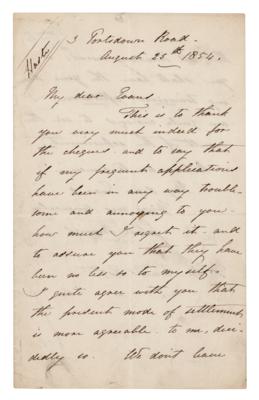 Haste
3 Portsdown Road.
August 25th 1854.
My dear Evans
This is to thank
you very much indeed for
the cheques and to say that
if my frequent applications
have been in any way trouble-
some and annoying to you
how much I regret it and
to assure you that they have
been no less so to myself.
I quite agree with you that
the present mode of settlement
is more agreeable to me, deci-
dedly so. We don't leave